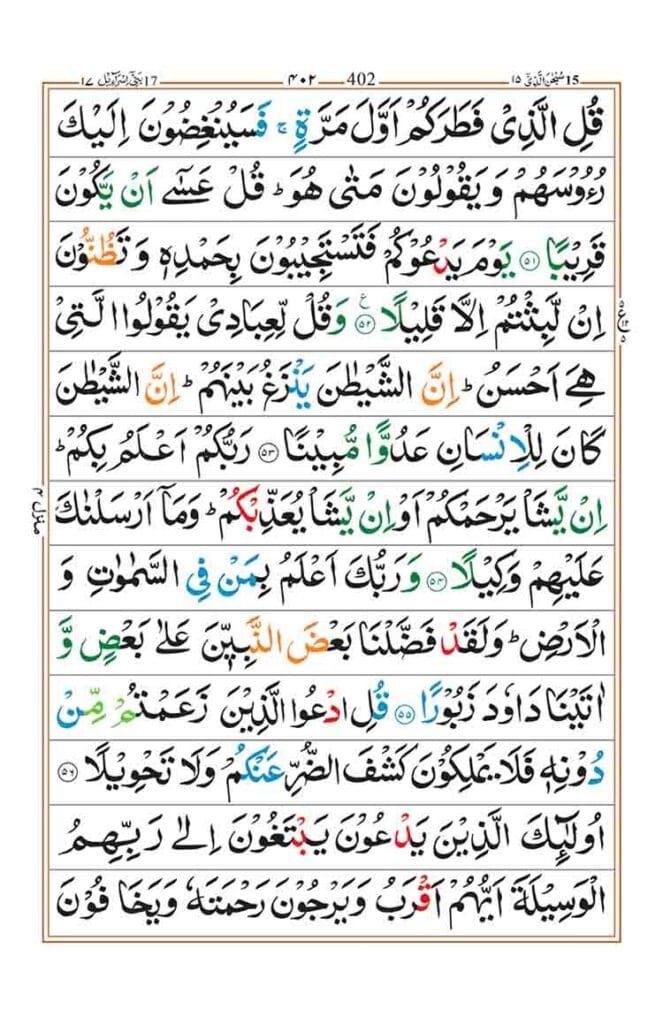 17 بنی اسرآءیل ۱۷ ۴۰۲ 402 سبحن الذی ۱۵ 15
قُلِ الَّذِىْ فَطَرَكُمْ اَوَّلَ مَرَّةٍ ۚ فَسَيُنْغِضُوْنَ اِلَيْكَ
رُءُوْسَهُمْ وَ يَقُوْلُوْنَ مَتٰى هُوَ ؕ قُلْ عَسٰٓى اَنْ يَّكُوْنَ
قَرِيْبًا ۵۱ يَوْمَ يَدْعُوْكُمْ فَتَسْتَجِيْبُوْنَ بِحَمْدِهٖ وَ تَظُنُّوْنَ
اِنْ لَّبِثْتُمْ اِلَّا قَلِيْلًا ۵۲ ع وَ قُلْ لِّعِبَادِىْ يَقُوْلُوا الَّتِىْ
هِىَ اَحْسَنُ ؕ اِنَّ الشَّيْطٰنَ يَنْزَغُ بَيْنَهُمْ ؕ اِنَّ الشَّيْطٰنَ
كَانَ لِلْاِنْسَانِ عَدُوًّا مُّبِيْنًا ۵۳ رَبُّكُمْ اَعْلَمُ بِكُمْ ؕ
اِنْ يَّشَاْ يَرْحَمْكُمْ اَوْ اِنْ يَّشَاْ يُعَذِّبْكُمْ ؕ وَمَاۤ اَرْسَلْنٰكَ
عَلَيْهِمْ وَكِيْلًا ۵۴ وَ رَبُّكَ اَعْلَمُ بِمَنْ فِى السَّمٰوٰتِ وَ
الْاَرْضِ ؕ وَلَقَدْ فَضَّلْنَا بَعْضَ النَّبِيّٖنَ عَلٰى بَعْضٍ وَّ
اٰتَيْنَا دَاوٗدَ زَبُوْرًا ۵۵ قُلِ ادْعُوا الَّذِيْنَ زَعَمْتُمْ مِّنْ
دُوْنِهٖ فَلَا يَمْلِكُوْنَ كَشْفَ الضُّرِّ عَنْكُمْ وَلَا تَحْوِيْلًا ۵۶
اُولٰٓئِكَ الَّذِيْنَ يَدْعُوْنَ يَبْتَغُوْنَ اِلٰى رَبِّهِمُ
الْوَسِيْلَةَ اَيُّهُمْ اَقْرَبُ وَ يَرْجُوْنَ رَحْمَتَهٗ وَيَخَافُوْنَ
منزل ۴